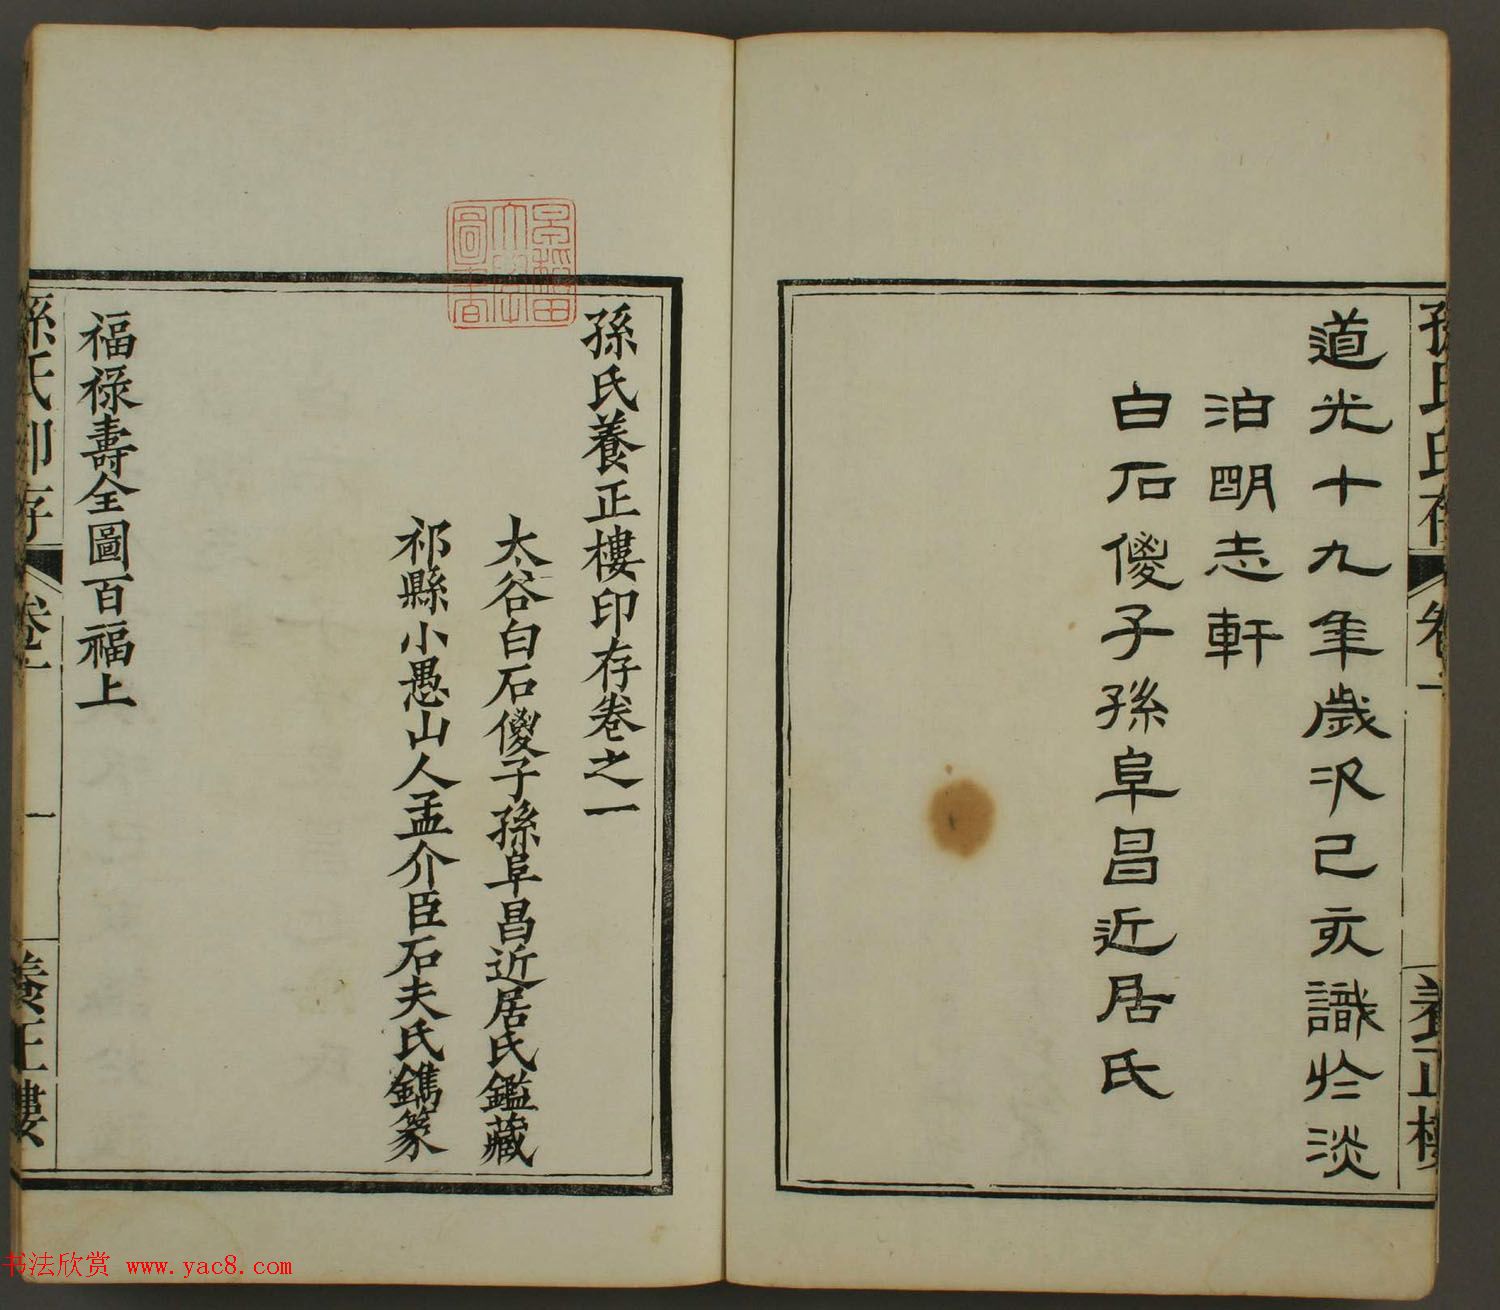 道光十九年歲次己亥識於淡
泊明志軒
白石傻子孫阜昌近居氏
孫氏養正樓印存卷之一
太谷白石傻子孫阜昌近居氏鑑藏
祁縣小愚山人孟介臣石夫氏鐫篆
福祿壽全圖百福上
孫氏印存
卷一
一
養正樓
早稻田大學圖書
书法欣赏 www.yac8.com